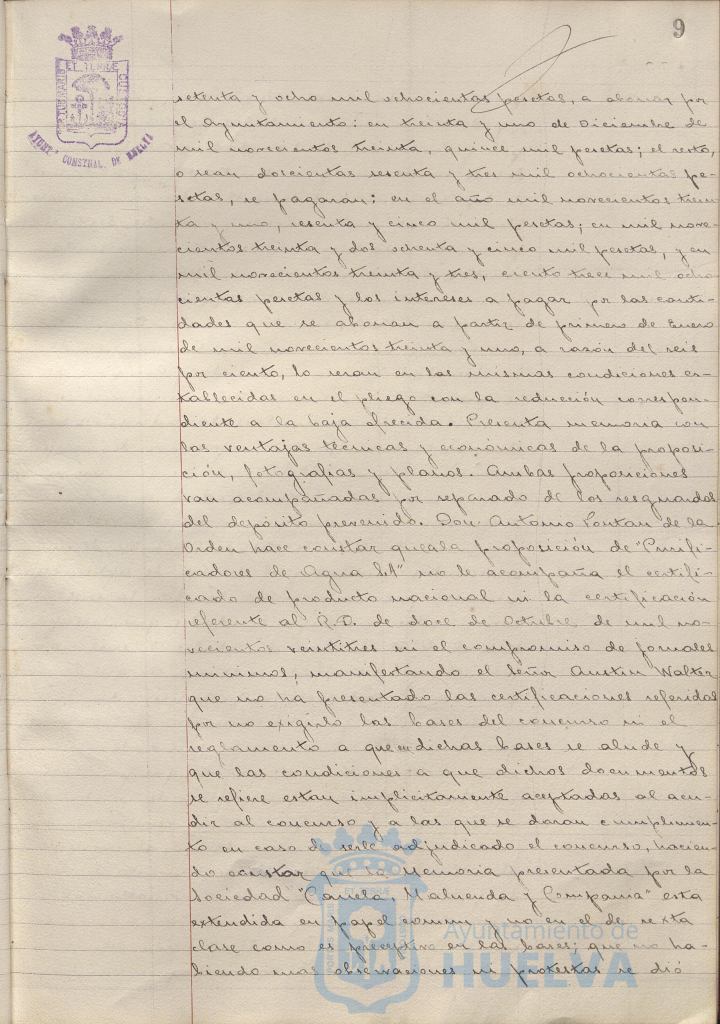 9
ET TERRE
AYUNT. CONSTNAL. DE HUELVA
setenta y ocho mil ochocientas pesetas, a abonar por
el Ayuntamiento: en treinta y uno de Diciembre de
mil novecientos treinta, quince mil pesetas; el resto,
o sean doscientas sesenta y tres mil ochocientas pe-
setas, se pagaran: en el año mil novecientos trein-
ta y uno, sesenta y cinco mil pesetas; en mil nove-
cientos treinta y dos ochenta y cinco mil pesetas, y en
mil novecientos treinta y tres, ciento trece mil ocho
cientas pesetas y los intereses a pagar por las canti-
dades que se abonan a partir de primero de Enero
de mil novecientos treinta y uno, a razón del seis
por ciento, lo seran en las mismas condiciones es-
tablecidas en el pliego con la reducción correspon-
diente a la baja ofrecida. Presenta memoria con
las ventajas técnicas y económicas de la proposi-
ción, fotografias y planos. Ambas proposiciones
van acompañadas por separado de los resguardos
del depósito prevenido. Don Antonio Pontan de la
Orden hace constar que a la proposición de "Purifi-
cadores de Agua S.A" no le acompaña el certifi-
cado de producto nacional ni la certificación
referente al R.D. de doce de Octubre de mil no-
vecientos veintitres ni el compromiso de jornales
minimos, manifestando el señor Austin Walter
que no ha presentado las certificaciones referidas
por no exigirlo las bases del concurso ni el
reglamento a que en dichas bases se alude y
que las condiciones a que dichos documentos
se refiere estan implicitamente aceptadas al acu-
dir al concurso y a las que se daran cumplimien-
to en caso de serle adjudicado el concurso, hacien-
do constar que la Memoria presentada por la
Sociedad " Maluenda y Compania" esta
extendida en papel comun y no en el de sexta
clase como es preceptivo en las bases; que no ha-
biendo mas observaciones ni protestas se dió
Ayuntamiento de
HUELVA